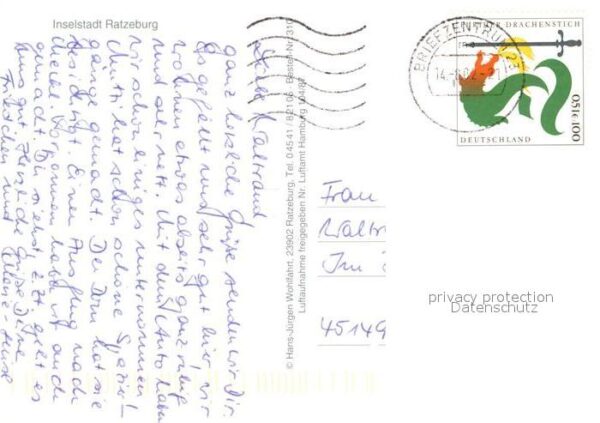 Inselstadt Ratzeburg
Liebe Waltraud
ganz herzliche Grüße senden wir Dir
Es gefällt uns sehr gut hier, wir
wohnen etwas abseits ganz
und sehr nett. Mit dem Auto haben
wir schon einiges unternommen
hat schon schöne Spazier-
gänge gemacht. Den Dom hat sie
besichtigt. Einen Ausflug nach
haben wir auch
gemacht. Du siehst z.Zt. geht es
uns gut. Herzliche Grüße Deine
Friedchen und
© Hans-Jürgen Wohlfahrt, 23902 Ratzeburg, Tel. 04541 / 82106 Bestell-Nr. 310
Luftaufnahme freigegeben Nr. Luftamt Hamburg 104/87
BRIEFZENTRUM
DRACHENSTICH
0,51€ 100
DEUTSCHLAND
Frau
Im
45149
privacy protection
Datenschutz